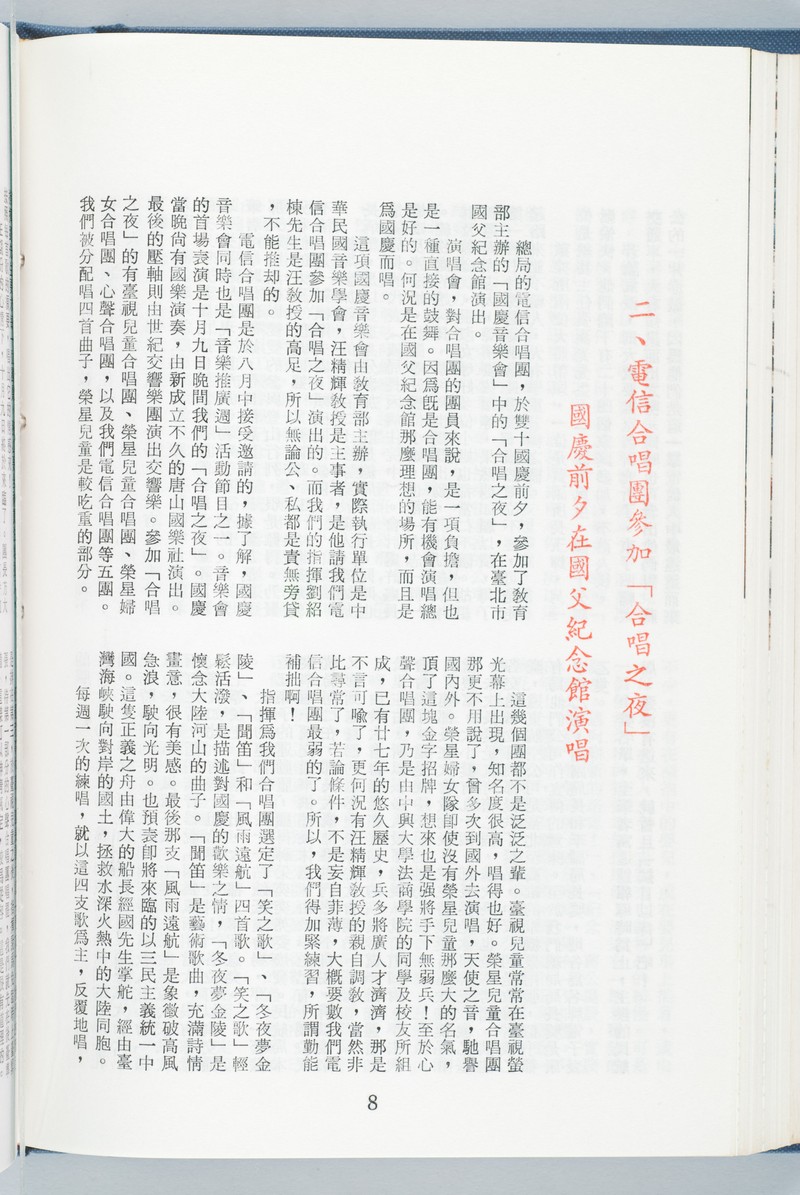 二、電信合唱團參加「合唱之夜」
國慶前夕在國父紀念館演唱
總局的電信合唱團，於雙十國慶前夕，參加了教育
部主辦的「國慶音樂會」中的「合唱之夜」，在臺北市
國父紀念館演出。
演唱會，對合唱團的團員來說，是一項負擔，但也
是一種直接的鼓舞。因爲旣是合唱團，能有機會演唱總
是好的。何況是在國父紀念館那麼理想的場所，而且是
爲國慶而唱。
這項國慶音樂會由教育部主辦，實際執行單位是中
華民國音樂學會，汪精輝教授是主事者，是他請我們電
信合唱團參加「合唱之夜」演出的。而我們的指揮劉紹
棟先生是汪教授的高足，所以無論公、私都是責無旁貸
，不能推却的。
電信合唱團是於八月中接受邀請的，據了解，國慶
音樂會同時也是「音樂推廣週」活動節目之一。音樂會
的首場表演是十月九日晚間我們的「合唱之夜」。國慶
當晚尙有國樂演奏，由新成立不久的唐山國樂社演出。
最後的壓軸則由世紀交響樂團演出交響樂。參加「合唱
之夜」的有臺視兒童合唱團、榮星兒童合唱團、榮星婦
女合唱團、心聲合唱團，以及我們電信合唱團等五團。
我們被分配唱四首曲子，榮星兒童是較吃重的部分。
這幾個團都不是泛泛之輩。臺視兒童常常在臺視螢
光幕上出現，知名度很高，唱得也好。榮星兒童合唱團
那更不用說了，曾多次到國外去演唱，天使之音，馳譽
國內外。榮星婦女隊卽使沒有榮星兒童那麼大的名氣，
頂了這塊金字招牌，想來也是强將手下無弱兵！至於心
聲合唱團，乃是由中興大學法商學院的同學及校友所組
成，已有廿七年的悠久歷史，兵多將廣人才濟濟，那是
不言可喩了，更何況有汪精輝教授的親自調教，當然非
比尋常了，若論條件，不是妄自菲薄，大概要數我們電
信合唱團最弱的了。所以，我們得加緊練習，所謂勤能
補拙啊！
指揮爲我們合唱團選定了「笑之歌」、「冬夜夢金
陵」、「聞笛」和「風雨遠航」四首歌。「笑之歌」輕
鬆活潑，是描述對國慶的歡樂之情，「冬夜夢金陵」是
懷念大陸河山的曲子。「聞笛」是藝術歌曲，充滿詩情
畫意，很有美感。最後那支「風雨遠航」是象徵破高風
急浪，駛向光明。也預表卽將來臨的以三民主義統一中
國。這隻正義之舟由偉大的船長經國先生掌舵，經由臺
灣海峽駛向對岸的國土，拯救水深火熱中的大陸同胞。
每週一次的練唱，就以這四支歌爲主，反覆地唱，
8